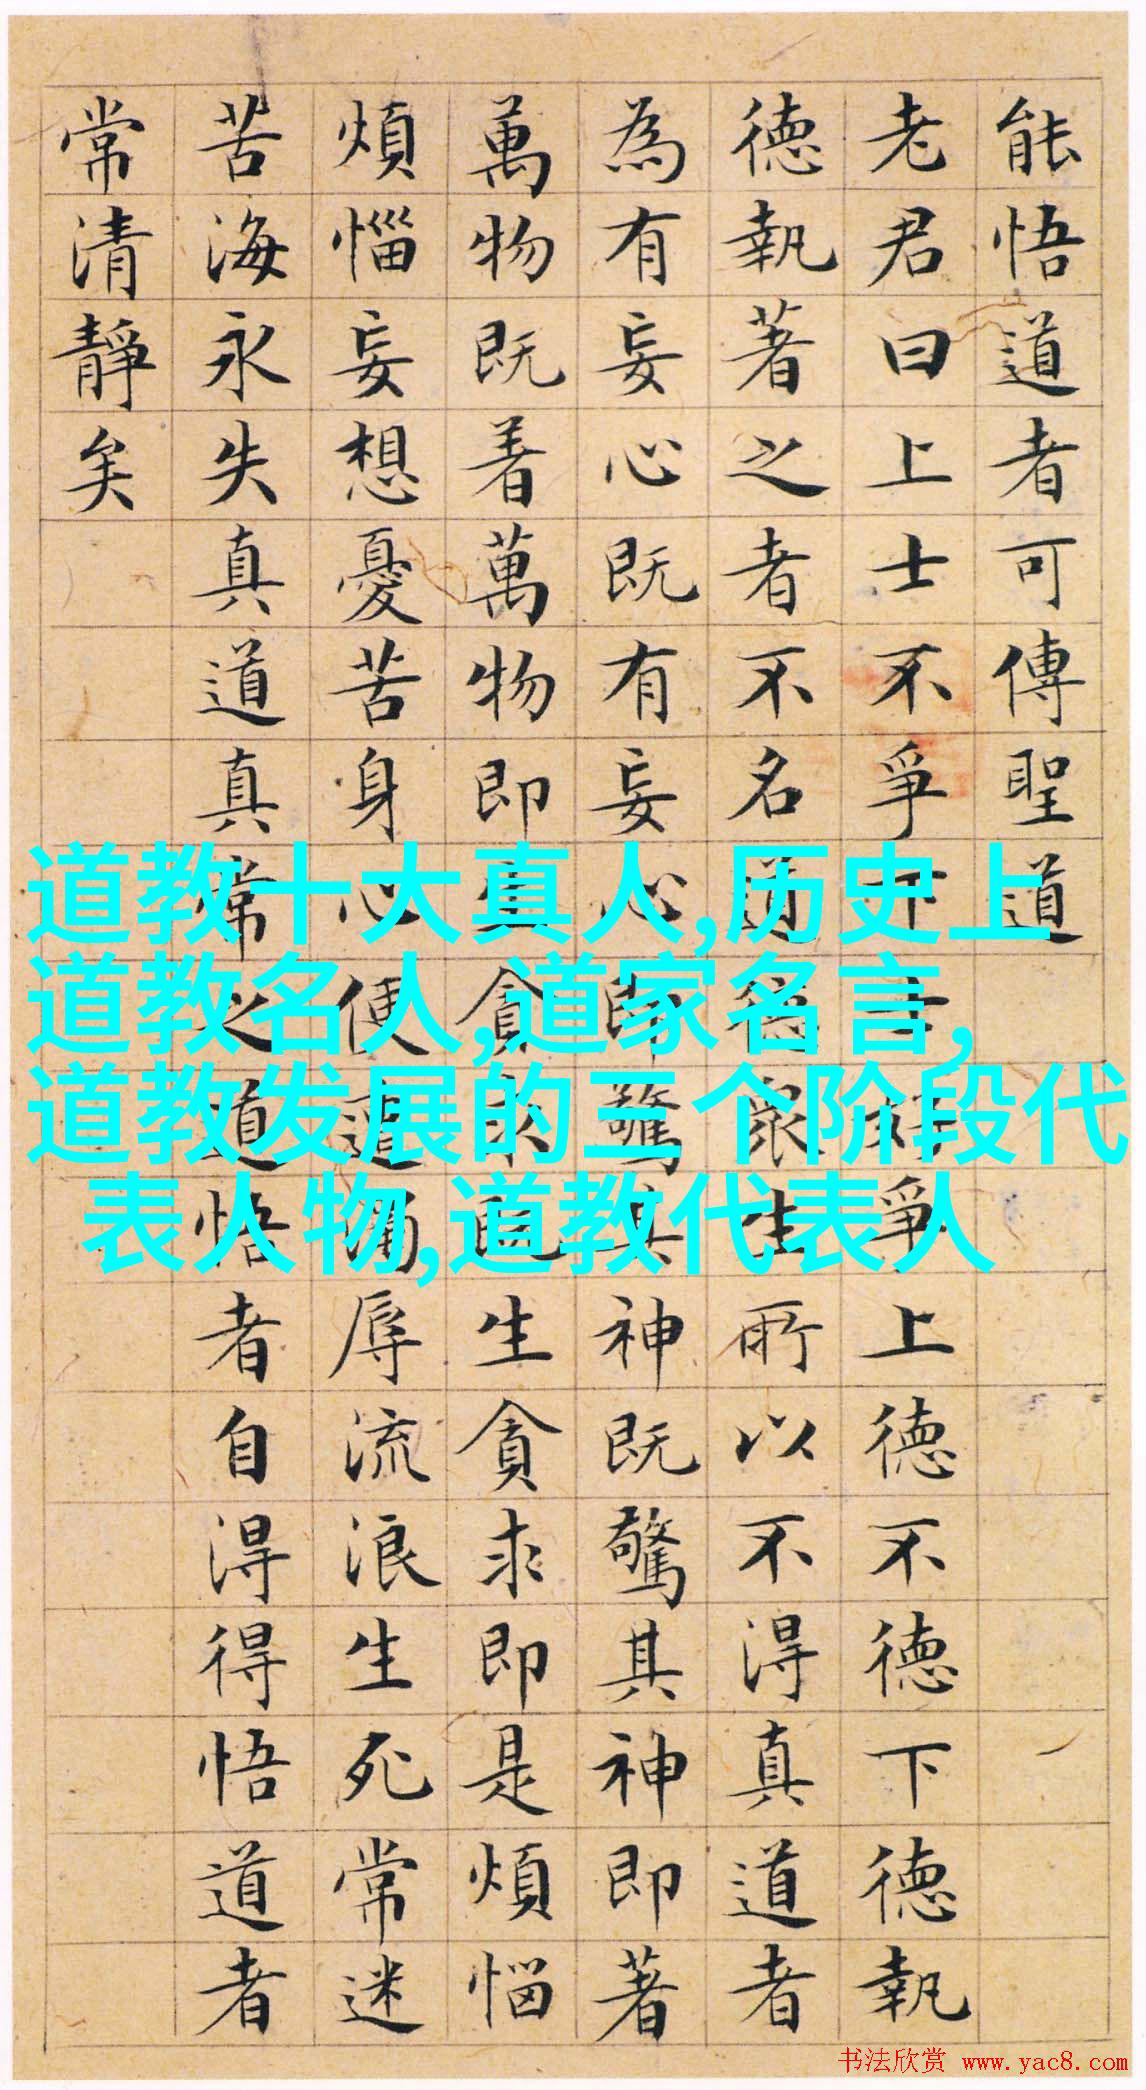 能悟道者可傳聖道
老君曰上士不爭下士好爭上德不德下德執
德執著之者不名道德眾生所以不得真道者
為有妄心既有妄心即驚其神既驚其神即著
萬物既着萬物即生貪求既生貪求即是煩惱
煩惱妄想憂苦身心便遭濁辱流浪生死常迷
苦海永失真道真常之道悟者自得得悟道者
常清靜矣
道教十大真人,历史上
道教名人,道家名言,
道教发展的三个阶段代
表人物,道教代表人
书法欣赏 www.yac8.com